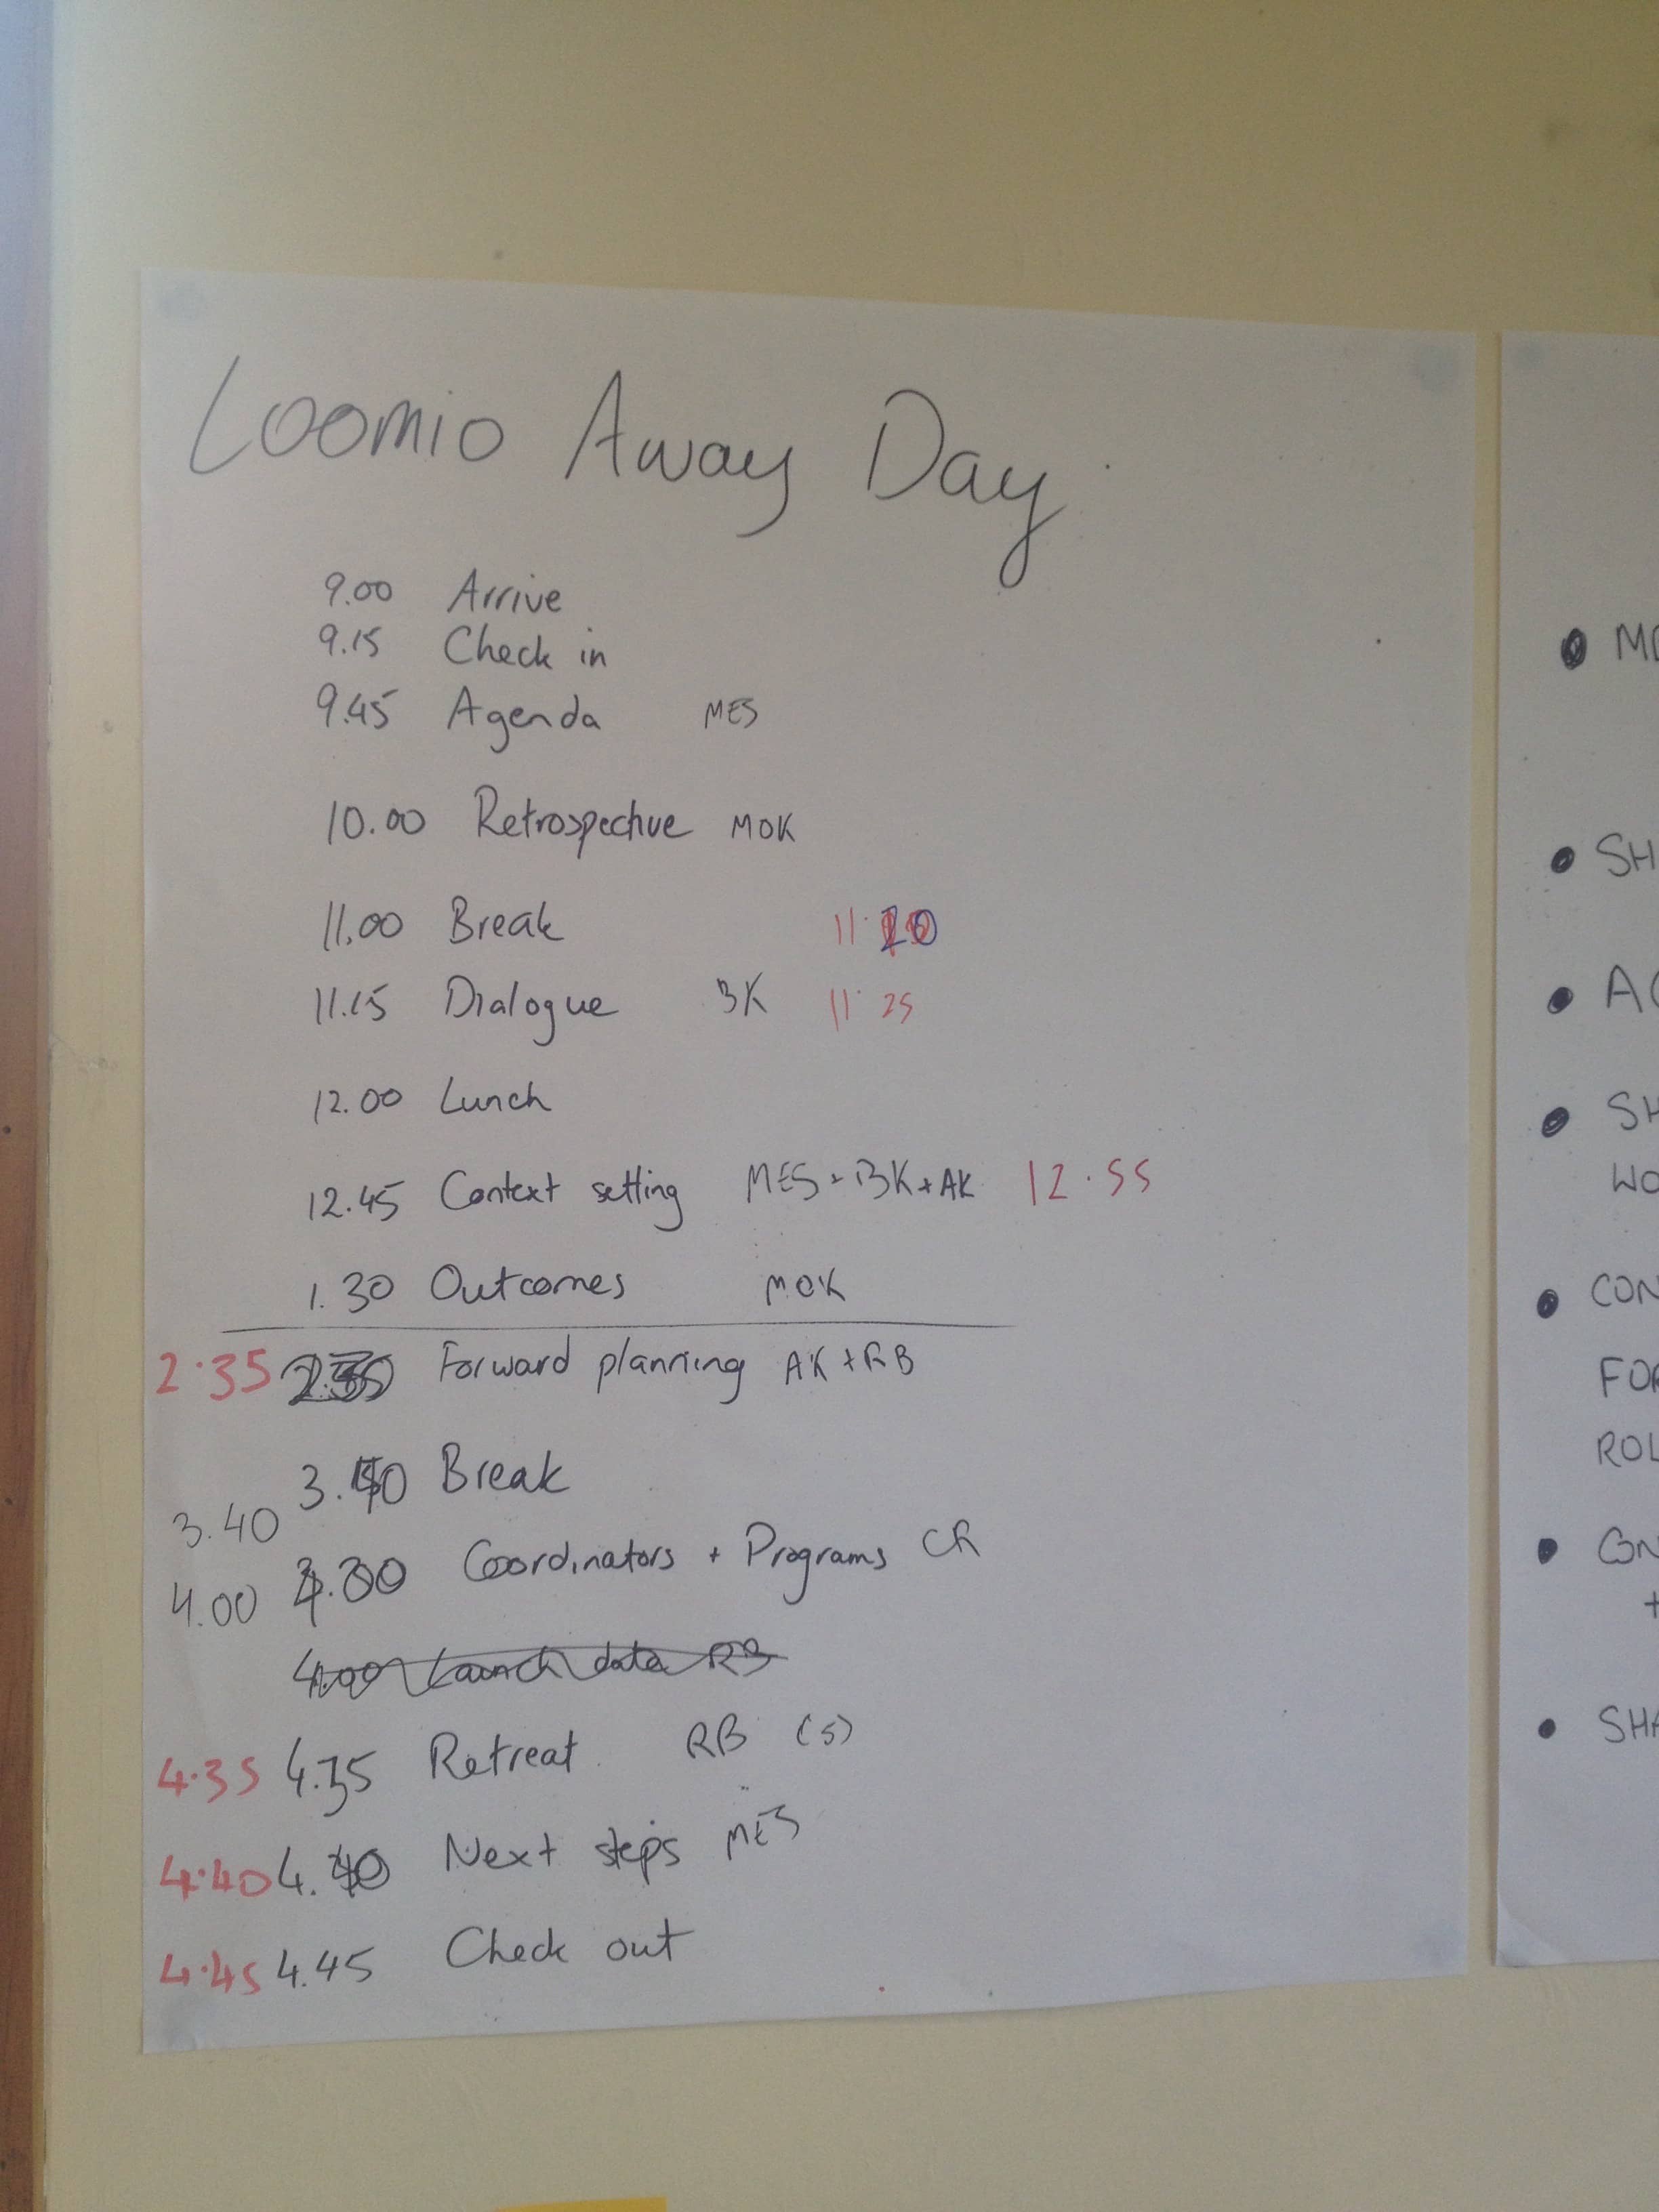 Loomio Away Day
9.00 Arrive
9.15 Check in
9.45 Agenda MES
10.00 Retrospective MOK
11.00 Break 11.20
11.15 Dialogue BK 11.25
12.00 Lunch
12.45 Context setting MES + BK + AK 12.55
1.30 Outcomes MOK
2.35 Forward planning AK + RB
3.40 Break
4.00 Coordinators + Programs CR
4.00 Launch data RB
4.35 4.35 Retreat RB (5)
4.40 4.40 Next steps MES
4.45 4.45 Check out
MO
SH
AC
SH
WO
CON
FOR
ROL
CON
+
SHA